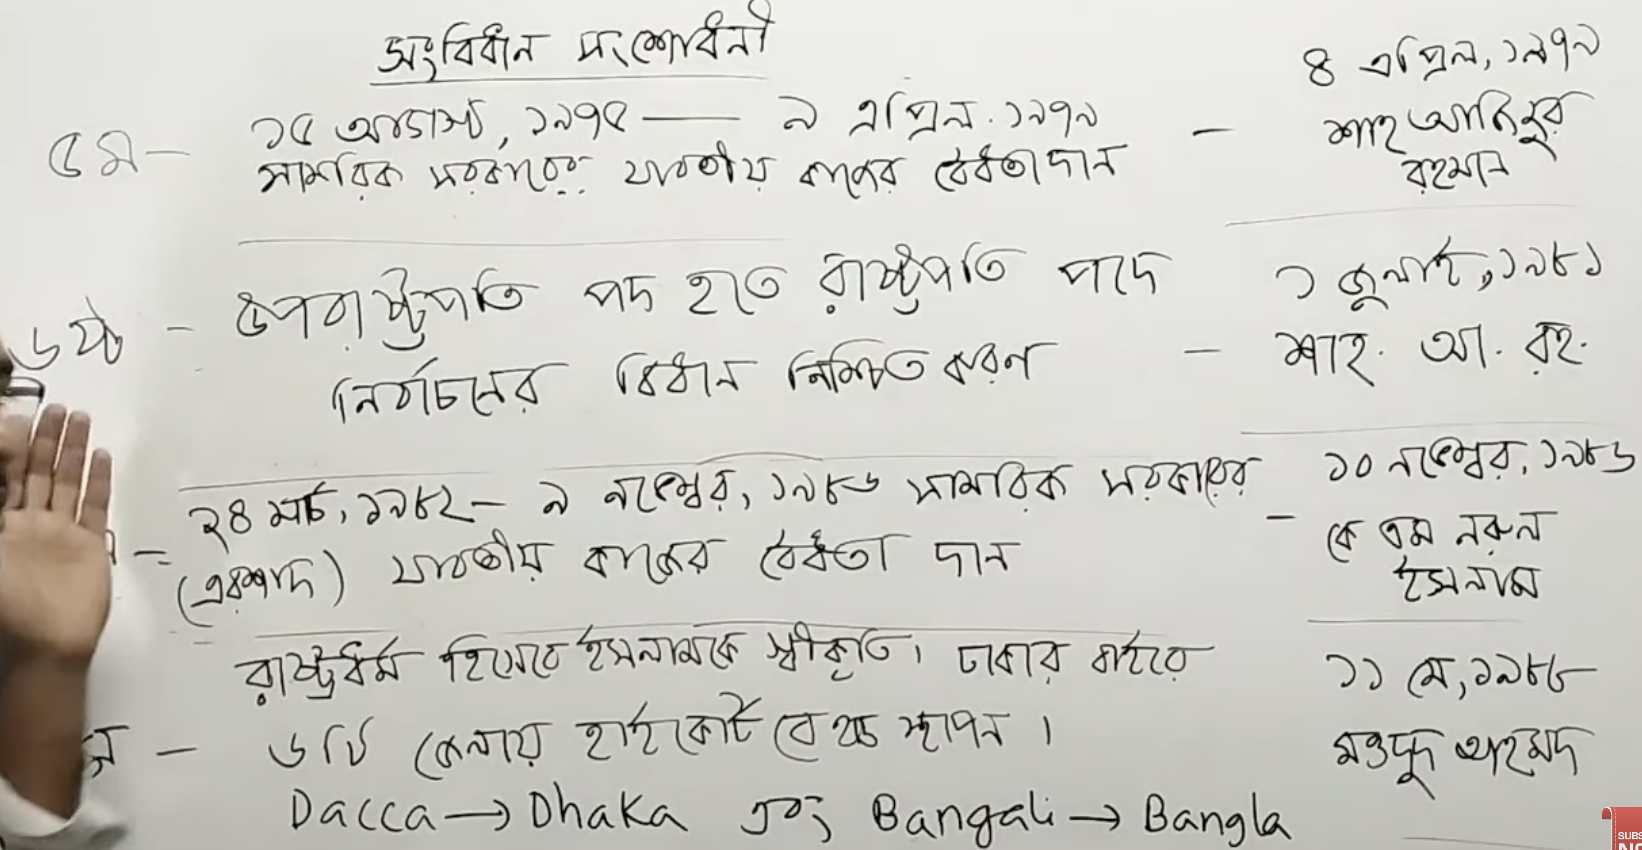 সংবিধান সংশোধনী
৫ম — ১৫ আগস্ট, ১৯৭৫ — ৯ এপ্রিল. ১৯৭৯
সামরিক সরকারের যাবতীয় কাজের বৈধতা দান —
৪ এপ্রিল, ১৯৭৯
শাহ আজিজুর
রহমান
৬ষ্ঠ — উপরাষ্ট্রপতি পদ হতে রাষ্ট্রপতি পদে
নির্বাচনের বিধান নিশ্চিতকরণ —
১ জুলাই, ১৯৮১
শাহ. আ. রহ.
— ২৪ মার্চ, ১৯৮২ — ৯ নভেম্বর, ১৯৮৬ সামরিক সরকারের
(এরশাদ) যাবতীয় কাজের বৈধতা দান —
১০ নভেম্বর, ১৯৮৬
কে এম নরুল
ইসলাম
রাষ্ট্রধর্ম হিসেবে ইসলামকে স্বীকৃতি। ঢাকার বাইরে
— ৬টি জেলায় হাইকোর্ট বেঞ্চ স্থাপন।
Dacca → Dhaka এবং Bangali → Bangla
১১ মে, ১৯৮৮
মওদুদ আহমদ
SUBS